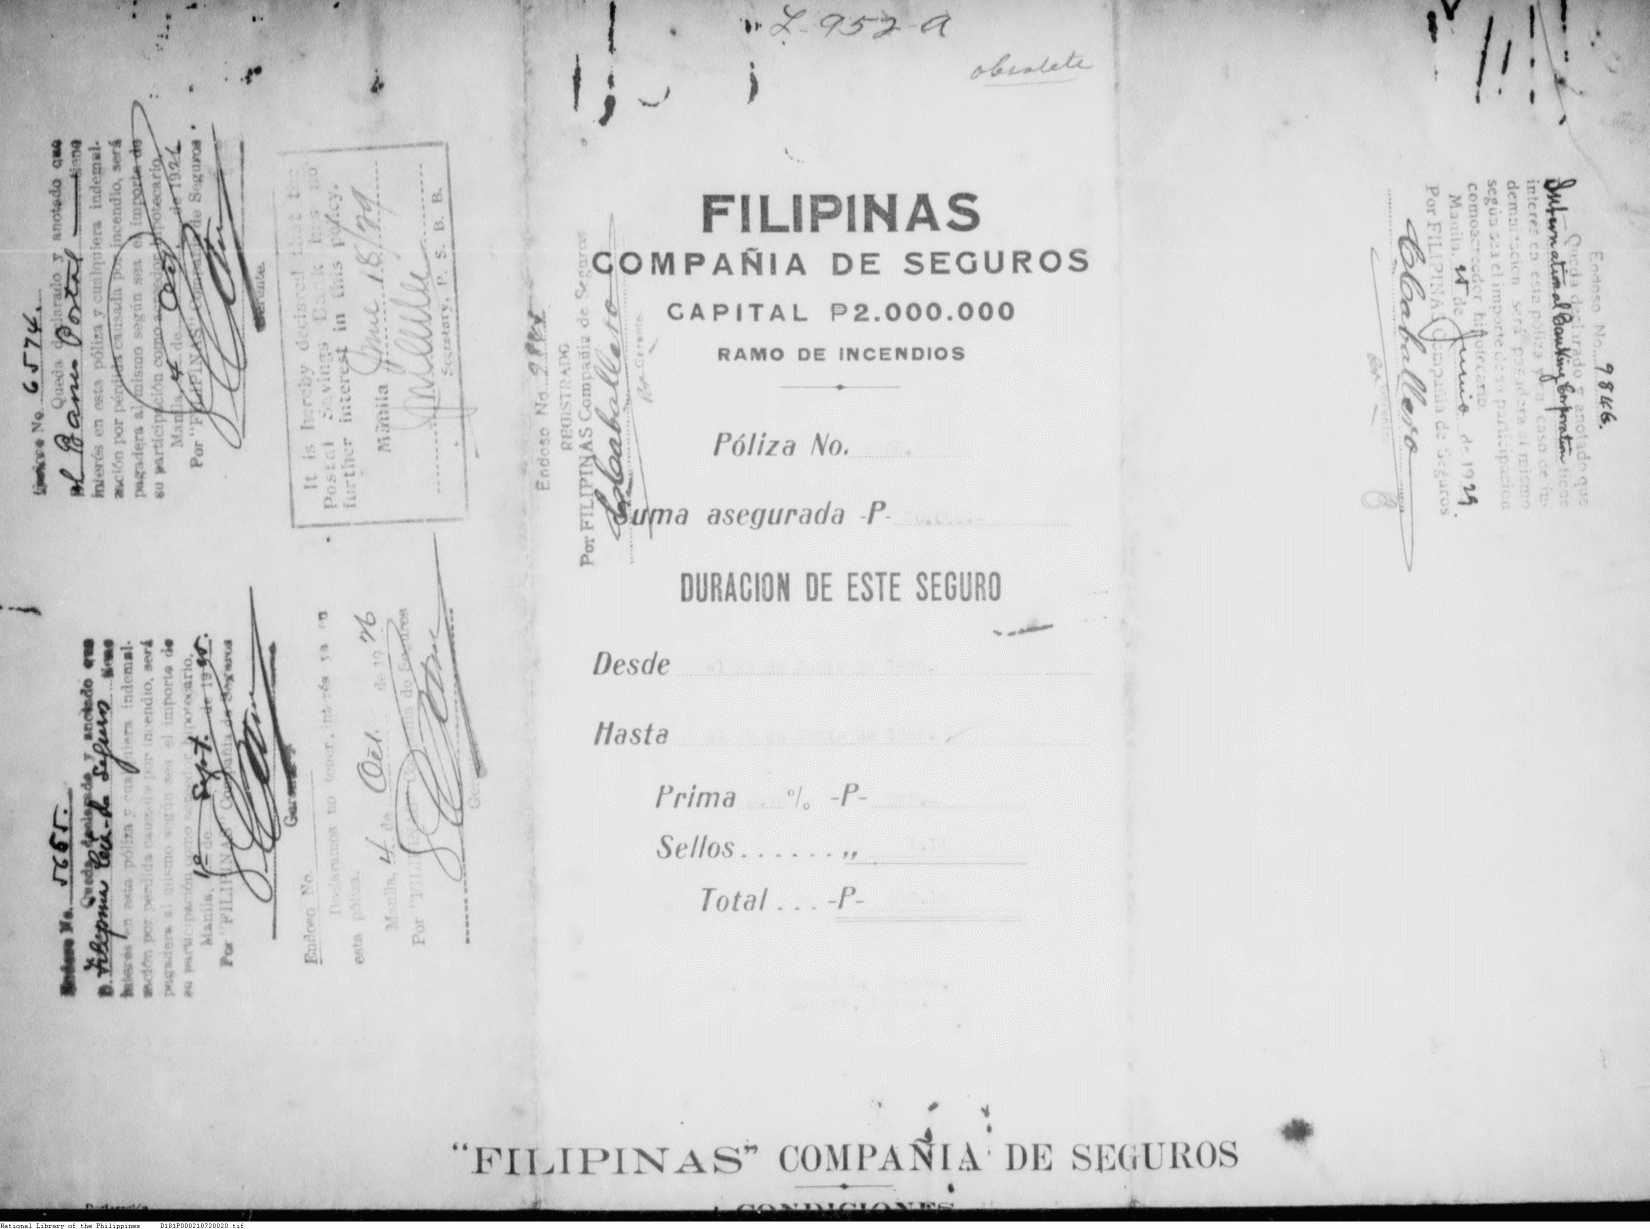 L-952-A
obsolete
FILIPINAS
COMPAÑIA DE SEGUROS
CAPITAL ₱2.000.000
RAMO DE INCENDIOS
Póliza No.
Suma asegurada -P-
DURACION DE ESTE SEGURO
Desde
Hasta
Prima % -P-
Sellos......,,
Total...-P-
"FILIPINAS" COMPAÑIA DE SEGUROS
CONDICIONES
No. 6574.
Queda declarado y anotado que
el Banco Postal tiene
interés en esta póliza y cualquiera indemni-
zación por pérdida causada por incendio, será
pagadera al mismo según sea el importe de
su participación como acreedor hipotecario.
Manila, 4 de Oct. de 1926
Por "FILIPINAS" Compañia de Seguros
Gerente.
It is hereby declared that the
Postal Savings Bank has no
further interest in this policy.
Manila June 18/29
Secretary, P. S. B. B.
Endoso No.
REGISTRADO
Por FILIPINAS Compañia de Seguros
C Caballero
Por Gerente.
Endoso No. 5655.
Queda declarado y anotado que
Filipinas Cia. de Seguros tiene
interés en esta póliza y cualquiera indemni-
zación por pérdida causada por incendio, será
pagadera al mismo según sea el importe de
su participación como acreedor hipotecario.
Manila, 1º de Sept. de 1925.
Por "FILIPINAS" Compañia de Seguros
Gerente
Endoso No.
Declaramos no tener interés ya en
esta póliza.
Manila, 4 de Oct. de 1926
Por "FILIPINAS" Compañia de Seguros
Endoso No. 9846.
Queda declarado y anotado que
International Banking Corporation tiene
interés en esta póliza y en caso de in-
demnización será pagadera al mismo
según sea el importe de su participación
como acreedor hipotecario.
Manila, de Junio de 1929.
Por FILIPINAS Compañia de Seguros
C Caballero
National Library of the Philippines